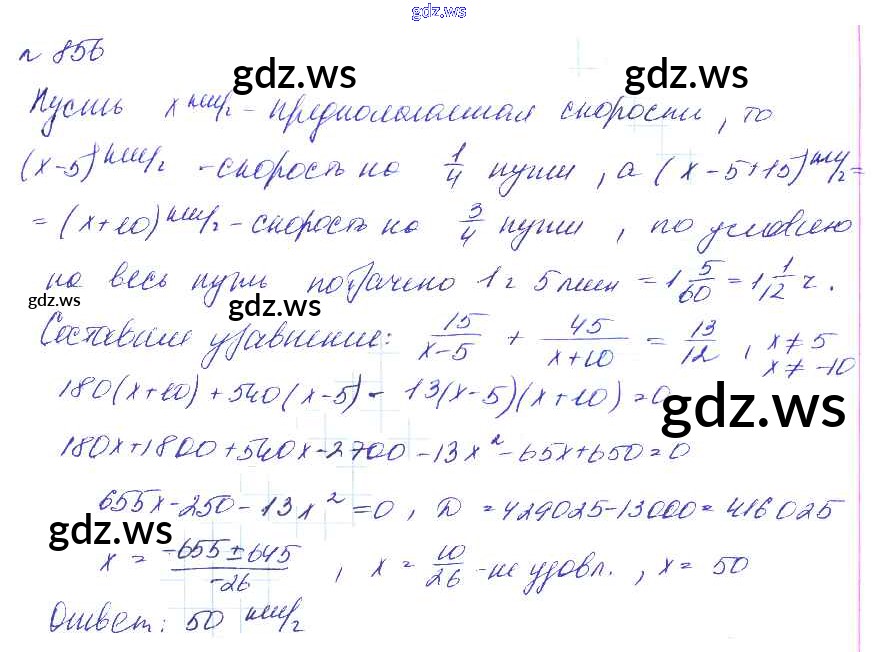 gdz.ws
n 856
gdz.ws gdz.ws
Пусть x км/г - предполагаемая скорости, то
(x-5) км/г - скорость на 1/4 пути, а (x-5+15) км/г =
= (x+10) км/г - скорость на 3/4 пути, по условию
на весь путь потрачено 1 г 5 мин = 1 5/60 = 1 1/12 г.
gdz.ws gdz.ws
Составим уравнение: 15/(x-5) + 45/(x+10) = 13/12, x ≠ 5
x ≠ -10
180(x+10) + 540(x-5) - 13(x-5)(x+10) = 0
gdz.ws
180x+1800+540x-2700-13x² -65x+650=0
655x-250-13x² =0, D =429025-13000=416025
gdz.ws
x = (-655±645)/-26, x = 10/26 -не удовл., x = 50
Ответ: 50 км/г